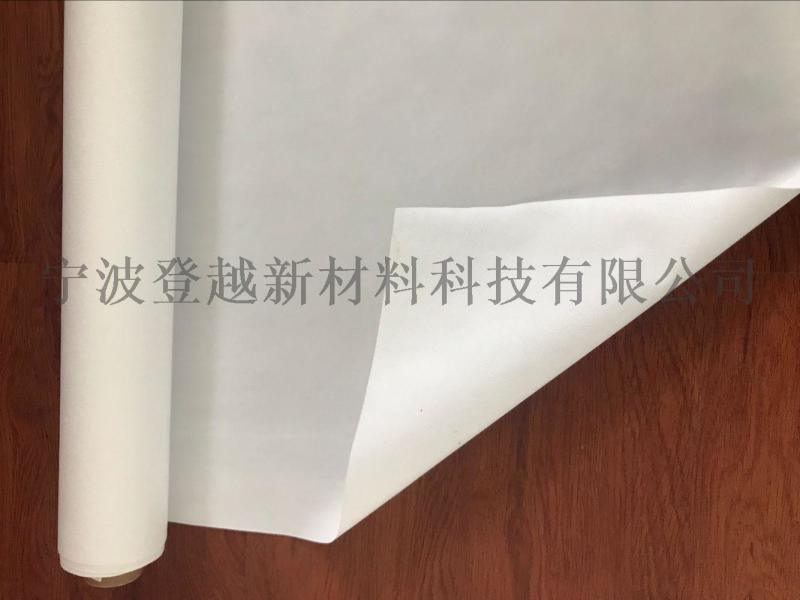 宁波登越新材料科技有限公司